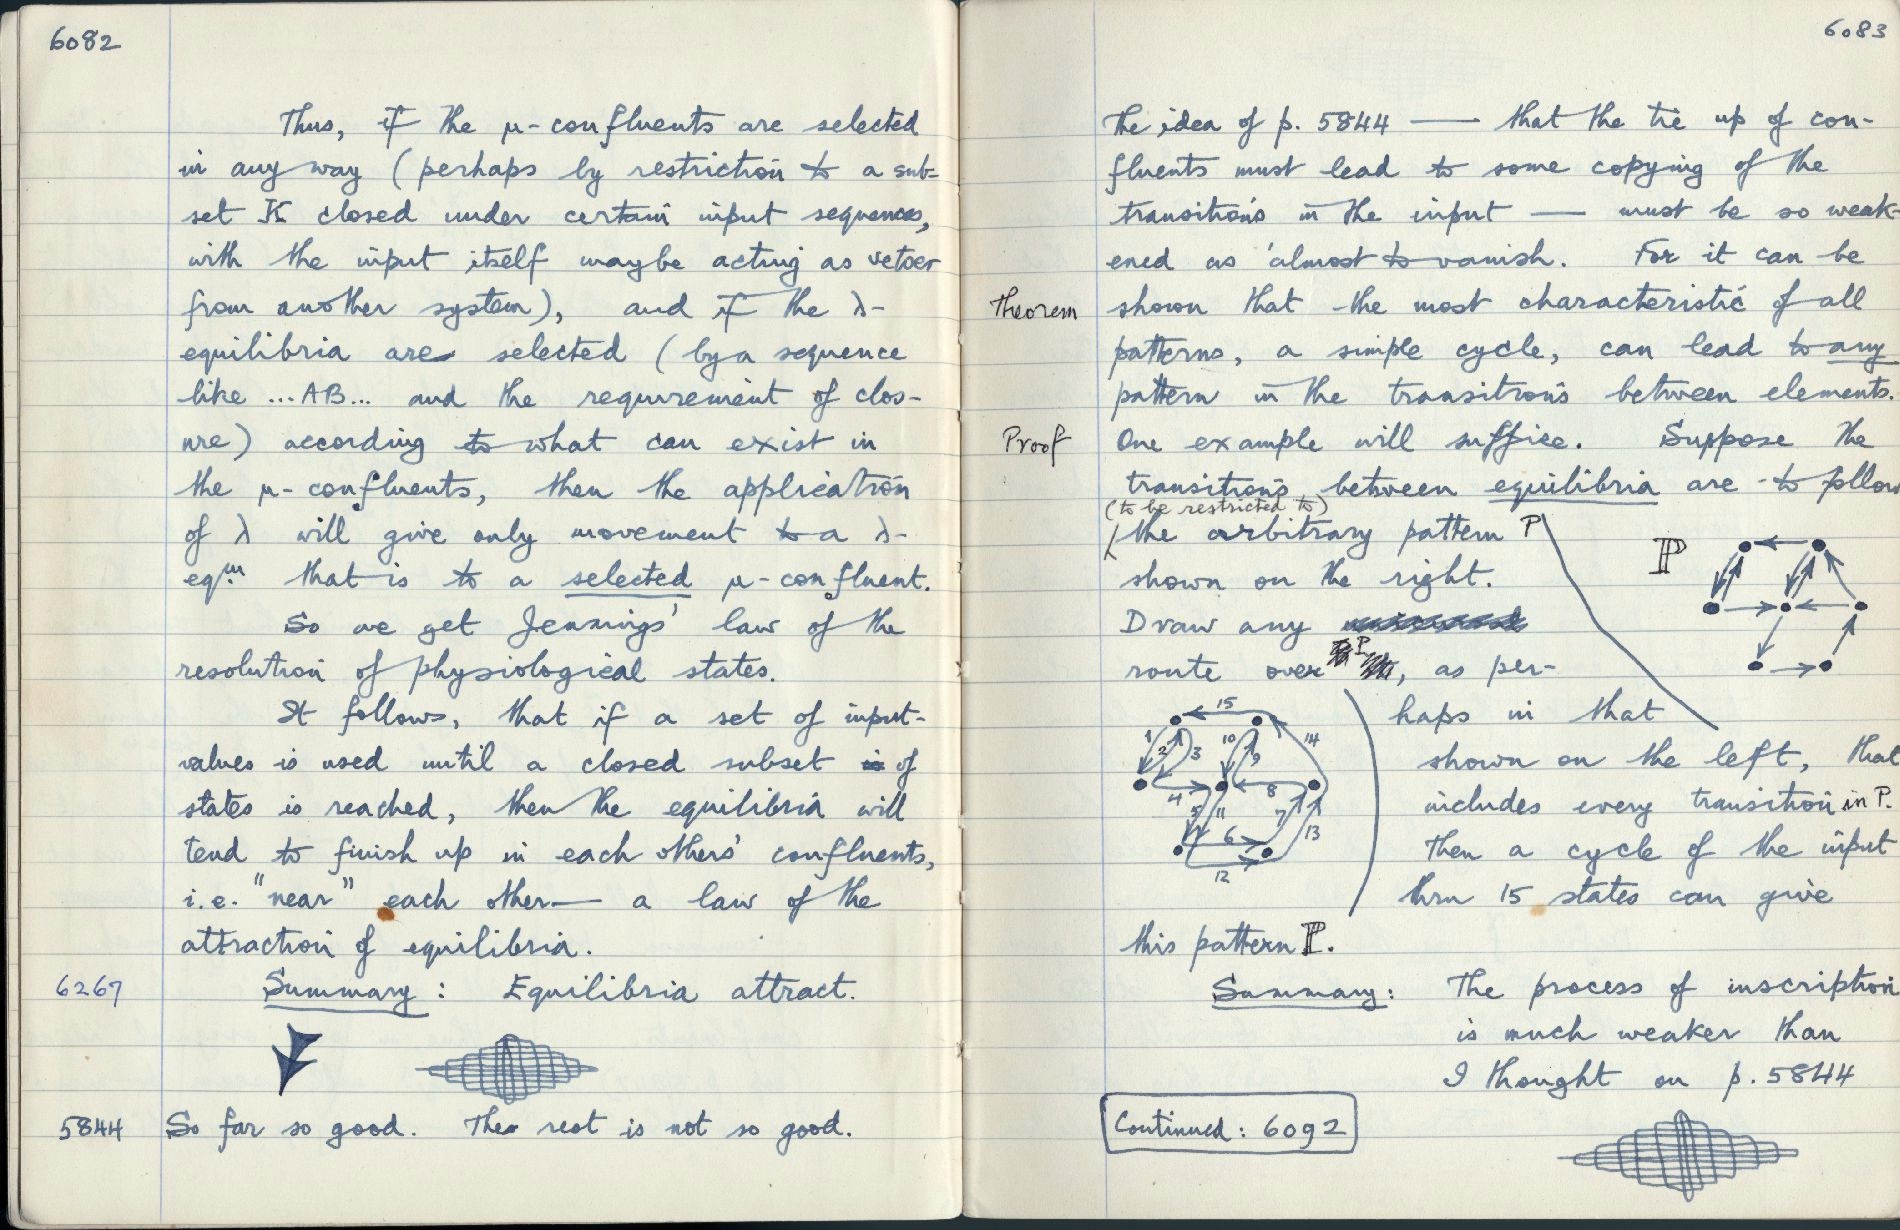 6082
Thus, if the μ-confluents are selected
in any way (perhaps by restriction to a sub-
set K closed under certain input sequences,
with the input itself maybe acting as vetoer
from another system), and if the λ-
equilibria are selected (by a sequence
like ...AB... and the requirement of clos-
ure) according to what can exist in
the μ-confluents, then the application
of λ will give only movement to a λ-
eqm. that is to a selected μ-confluent.
So we get Jennings' law of the
resolution of physiological states.
It follows, that if a set of input-
values is used until a closed subset of
states is reached, then the equilibria will
tend to finish up in each others' confluents,
i.e. "near" each other — a law of the
attraction of equilibria.
6267 Summary: Equilibria attract.
5844 So far so good. The rest is not so good.
6083
The idea of p. 5844 — that the tie up of con-
fluents must lead to some copying of the
transitions in the input — must be so weak-
ened as almost to vanish. For it can be
Theorem shown that the most characteristic of all
patterns, a simple cycle, can lead to any
pattern in the transitions between elements.
Proof One example will suffice. Suppose the
transitions between equilibria are to follow
(to be restricted to)
the arbitrary pattern P
shown on the right.
P
Draw any
route over P, as per-
haps in that
shown on the left, that
includes every transition in P.
Then a cycle of the input
thru 15 states can give
15
1 2 3 10 9 14
4 8
5 11 7 13
6
12
this pattern P.
Summary: The process of inscription
is much weaker than
I thought on p. 5844
Continued: 6092